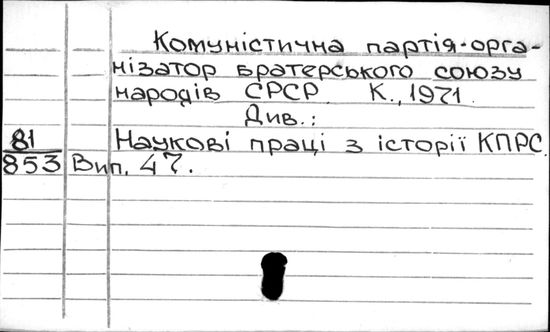 Комуністична партія-орга-
нізатор братерського союзу
народів СРСР К., 1971.
Див.:
81 Наукові праці з історії КПРС.
853 Вип. 47.